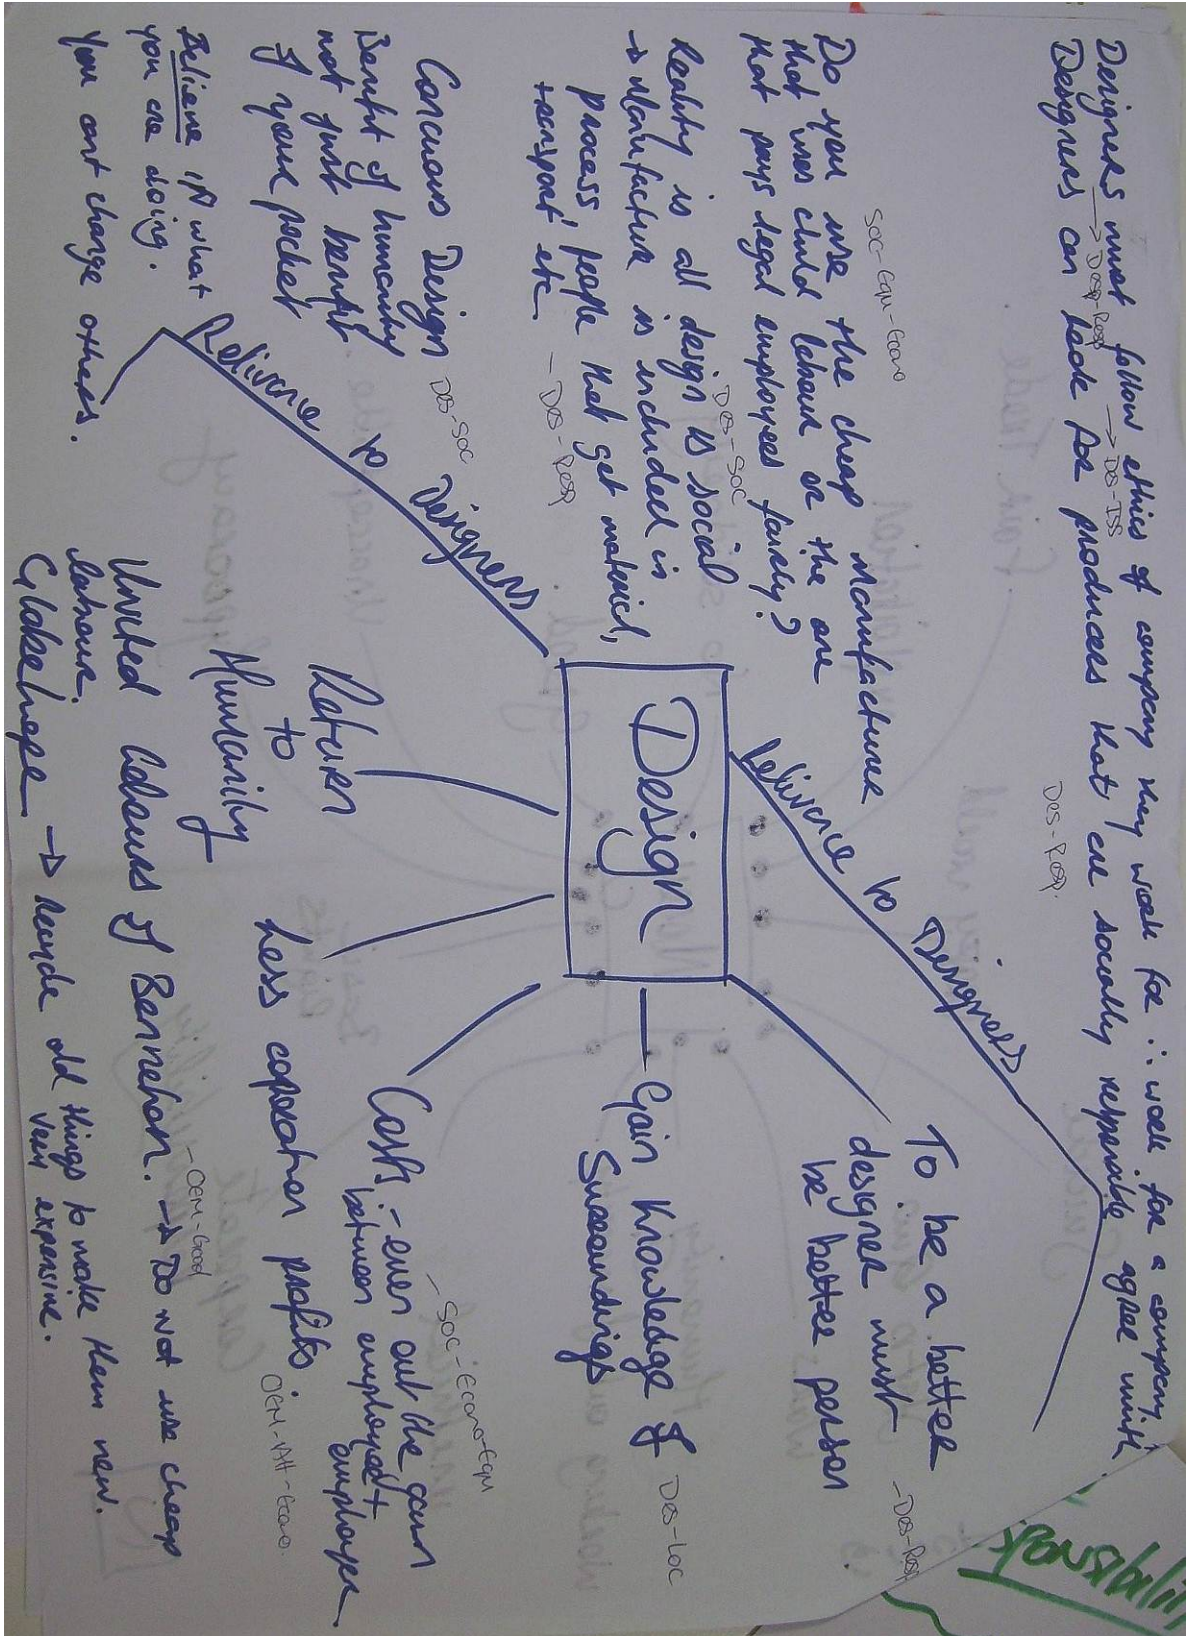 Designers must follow ethics of company they work for ∴ work for a company
→ Des-Resp
→ Des-Iss
Designers can look for producers that are socially responsible agree with.
Des-Resp.
Soc-Equ-Econo
Do you use the cheap manufacturer
that uses child labour or the one
that pays legal employees fairely?
Des-Soc
Reality is all design is social
→ Manufacture is included is
process, people that get material,
transport etc
- Des-Resp
Concious Design
Des-Soc
Benifit of humanity
not just benifit
of your pocket
Believe in what
you are doing.
You cant change others.
Relivene to Designers
Design
Relivene to Designers
To be a better
designer must
be better person
- Des-Resp
Gain Knowledge of
Surroundings
Des-Loc
Cash - even out the gain
between employed +
employer
- Soc-Econo-Equ
Less coporation profits.
OEM-Att-Econo.
Return
to
Humanity
United Colours of Bennehon. → Do not use cheap
labour.
- OEM-Good
Globehope → Recycle old things to make them new.
Very expensive.